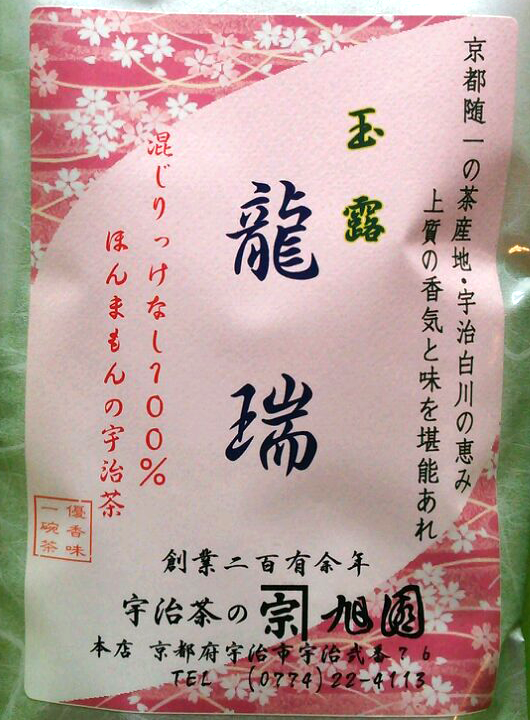 京都随一の茶産地・宇治白川の恵み
上質の香気と味を堪能あれ
玉露
龍瑞
混じりっけなし100%
ほんまもんの宇治茶
優香味
一碗茶
創業二百有余年
宇治茶の宗旭園
本店 京都府宇治市宇治弐番76
TEL (0774)22-4113